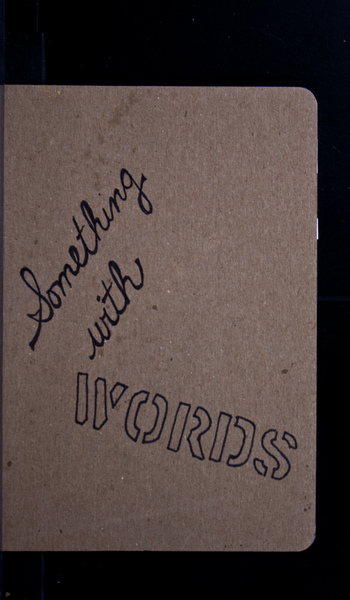 Something
with
WORDS